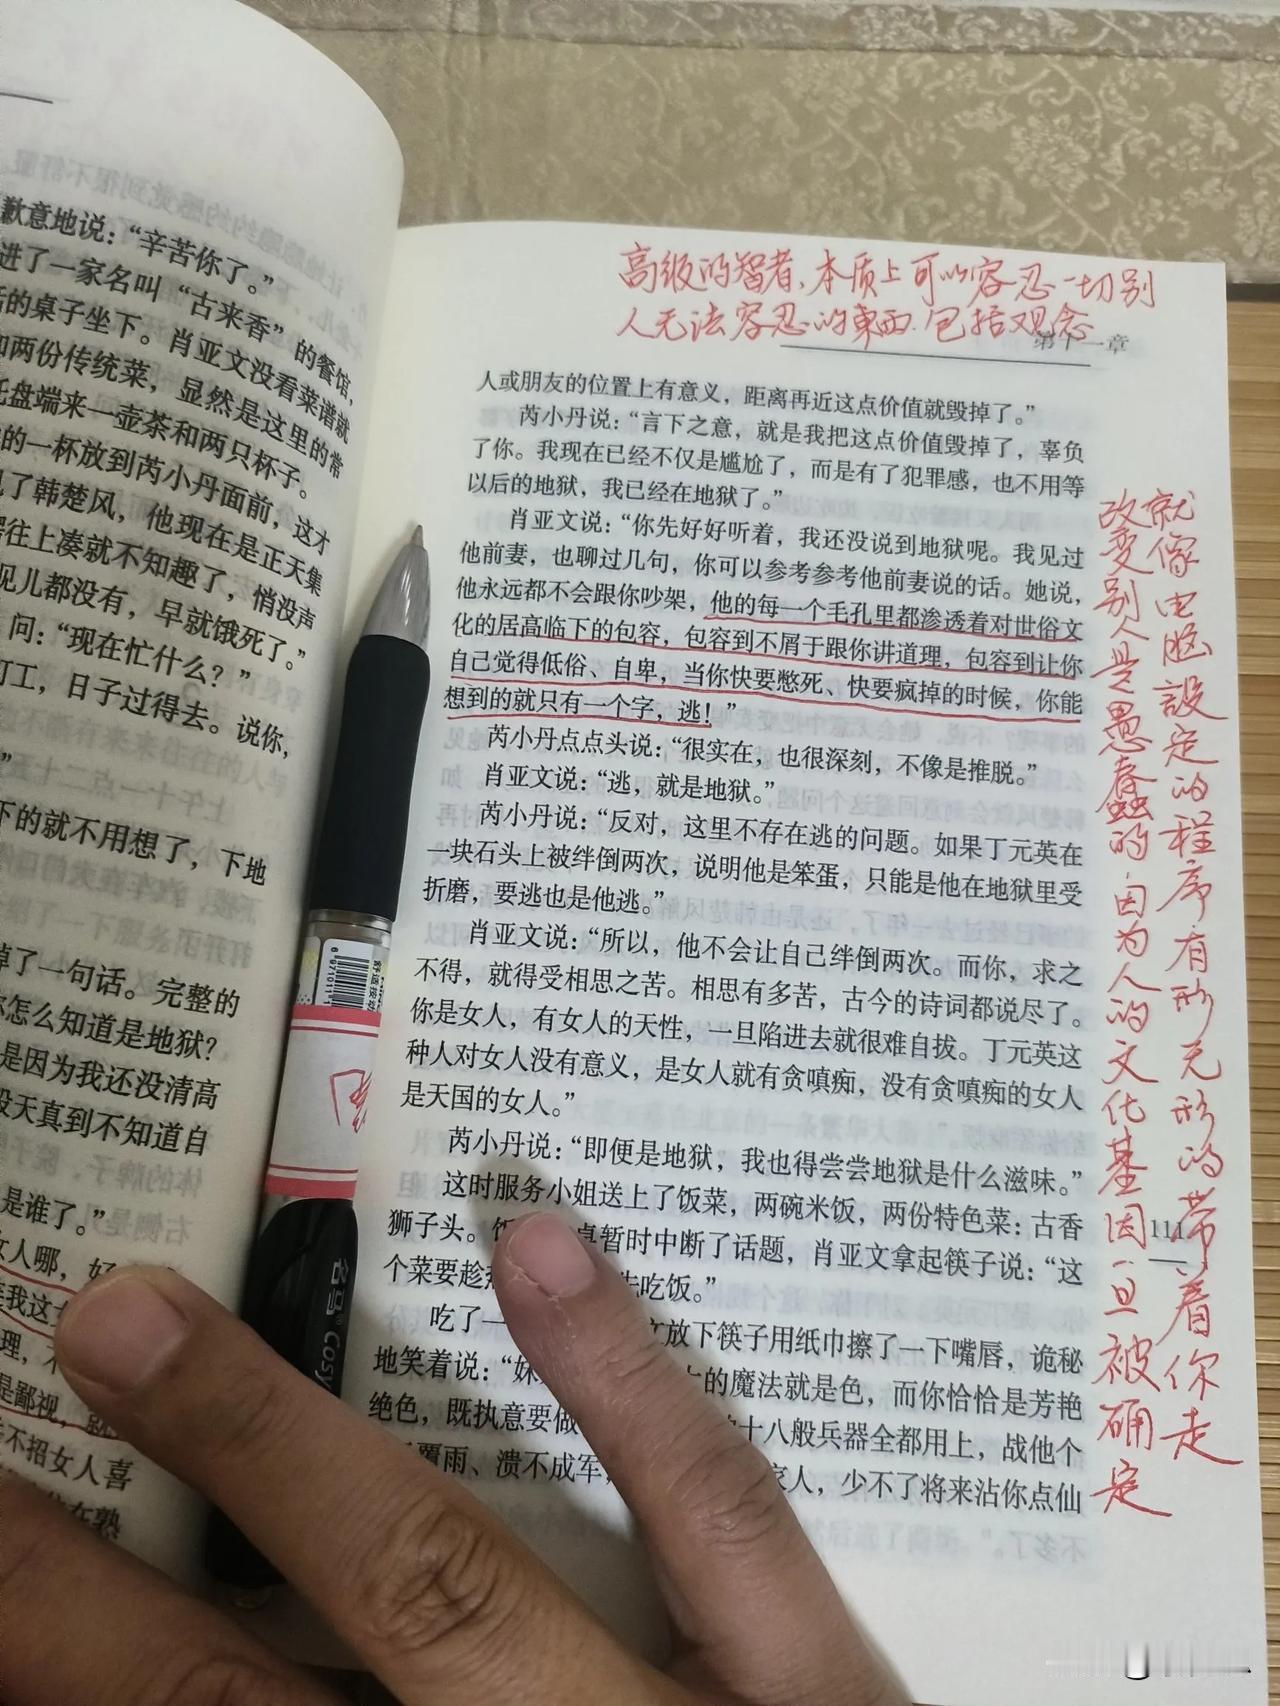 歉意地说：“辛苦你了。”
进了一家名叫“古来香”的餐馆，
的桌子坐下。肖亚文没看菜谱就
和两份传统菜，显然是这里的常
托盘端来一壶茶和两只杯子。
的一杯放到芮小丹面前，这才
见了韩楚风，他现在是正天集
往上凑就不知趣了，悄没声
见儿都没有，早就饿死了。”
问：“现在忙什么？”
打工，日子过得去。说你，
”
下的就不用想了，下地
掉了一句话。完整的
你怎么知道是地狱？
是因为我还没清高
天真到不知道自
是谁了。”
女人哪，好
我这
理，不
是鄙视，就
不招女人喜
在熟
高级的智者，本质上可以容忍一切别
人无法容忍的東西.包括观念
第十一章
人或朋友的位置上有意义，距离再近这点价值就毁掉了。”
芮小丹说：“言下之意，就是我把这点价值毁掉了，辜负
了你。我现在已经不仅是尴尬了，而是有了犯罪感，也不用等
以后的地狱，我已经在地狱了。”
肖亚文说：“你先好好听着，我还没说到地狱呢。我见过
他前妻，也聊过几句，你可以参考参考他前妻说的话。她说，
他永远都不会跟你吵架，他的每一个毛孔里都渗透着对世俗文
化的居高临下的包容，包容到不屑于跟你讲道理，包容到让你
自己觉得低俗、自卑，当你快要憋死、快要疯掉的时候，你能
想到的就只有一个字，逃！”
芮小丹点点头说：“很实在，也很深刻，不像是推脱。”
肖亚文说：“逃，就是地狱。”
芮小丹说：“反对，这里不存在逃的问题。如果丁元英在
一块石头上被绊倒两次，说明他是笨蛋，只能是他在地狱里受
折磨，要逃也是他逃。”
肖亚文说：“所以，他不会让自己绊倒两次。而你，求之
不得，就得受相思之苦。相思有多苦，古今的诗词都说尽了。
你是女人，有女人的天性，一旦陷进去就很难自拔。丁元英这
种人对女人没有意义，是女人就有贪嗔痴，没有贪嗔痴的女人
是天国的女人。”
芮小丹说：“即便是地狱，我也得尝尝地狱是什么滋味。”
这时服务小姐送上了饭菜，两碗米饭，两份特色菜：古香
狮子头。饭 桌暂时中断了话题，肖亚文拿起筷子说：“这
个菜要趁 先吃饭。”
吃了一 文放下筷子用纸巾擦了一下嘴唇，诡秘
地笑着说：“妹 的魔法就是色，而你恰恰是芳艳
绝色，既执意要做 十八般兵器全都用上，战他个
覆雨、溃不成军， 家人，少不了将来沾你点仙
就像电脑設定的程序有形无形的带着你走
改变别人是愚蠢的.因为人的文化基因一旦被确定
111
名马® Cosy